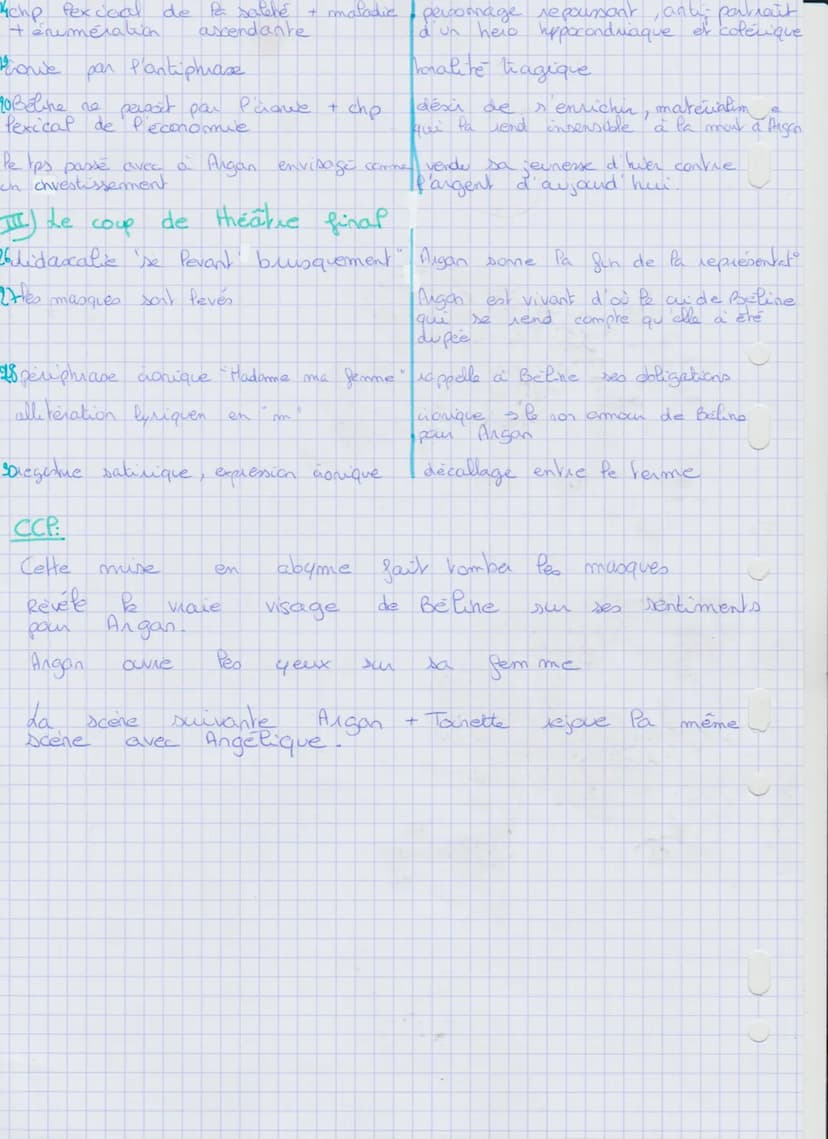 chp lexical de la saleté + maladie
+ énumération ascendante
personnage repoussant, anti-portrait
d'un héro hyppocondriaque et colérique
ironie par l'antiphrase
tonalité tragique
20 Béline ne perçoit pas l'ironie + chp
lexical de l'économie
désir de s'enrichir, matérialisme
qui la rend insensible à la mort d'Argan
le tps passé avec à Argan envisagé comme
un investissement
vendu sa jeunesse d'hier contre
l'argent d'aujourd'hui.
III) Le coup de théâtre final
26 didascalie "se levant brusquement"
Argan sonne la fin de la représentat°
27 les masques sont levés
Argan est vivant d'où le cri de Béline
qui se rend compte qu'elle a été
dupée
28 périphrase ironique "Madame ma femme"
rappelle à Béline ses obligations
allitération lyriquen en "m"
ironique → le non amour de Béline
pour Argan
30 registre satirique, expression ironique
décallage entre le terme
CCP:
Cette mise en abyme fait tomber les masques
Révéle le vraie visage de Béline sur ses sentiments
pour Argan.
Argan ouvre les yeux sur sa femme
La scène suivante Argan + Toinette rejoue la même
scène avec Angélique.